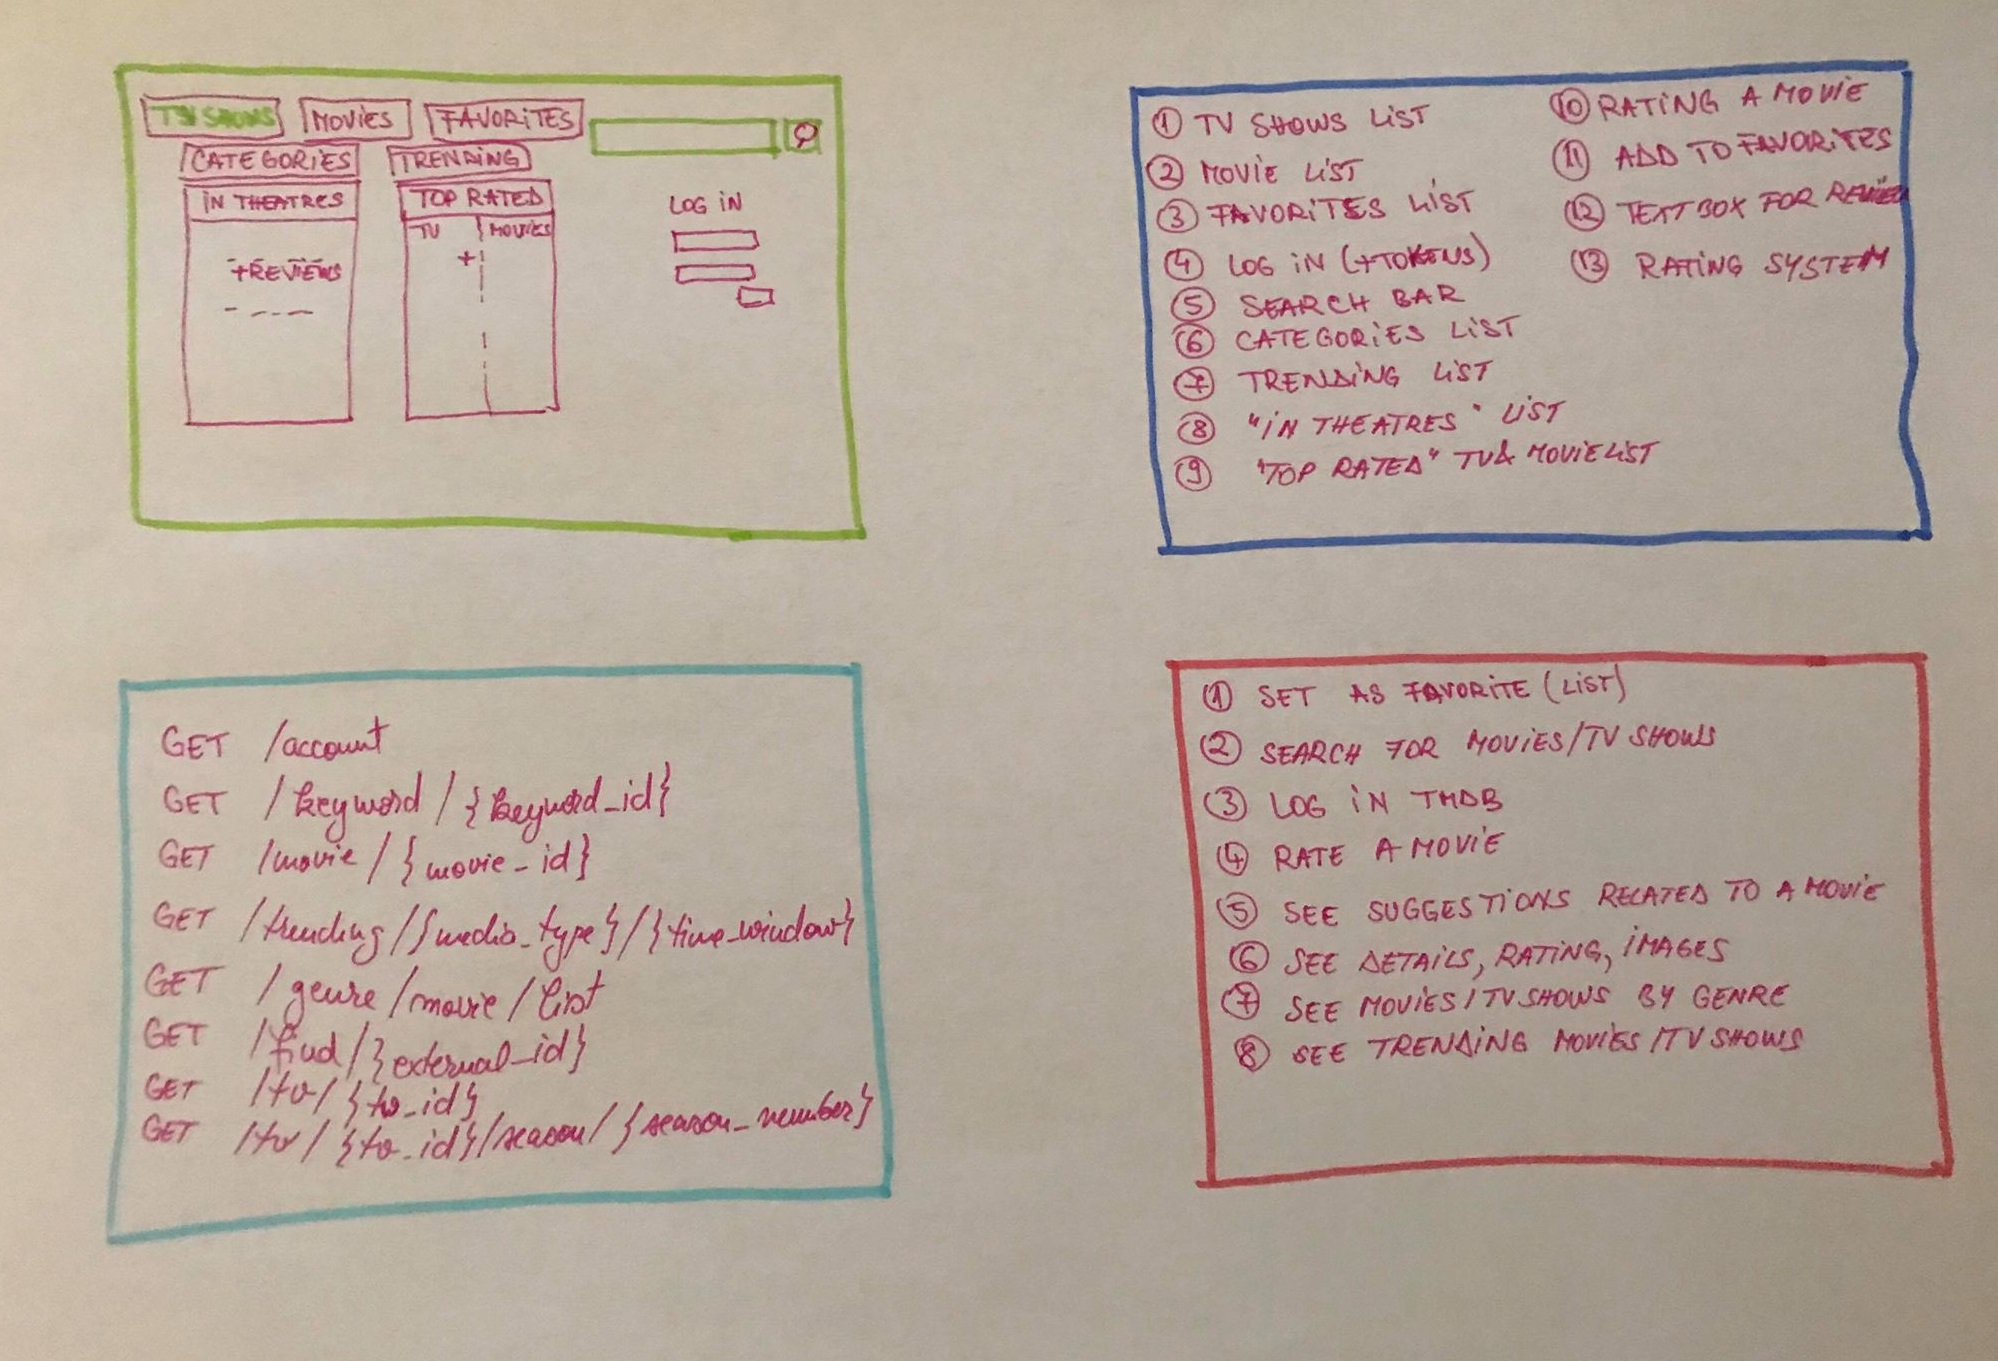 TV SHOWS MOVIES FAVORITES
CATEGORIES TRENDING
IN THEATRES TOP RATED
TV MOVIES
+REVIEWS
+
LOG IN
① TV SHOWS LIST
② MOVIE LIST
③ FAVORITES LIST
④ LOG IN (+TOKENS)
⑤ SEARCH BAR
⑥ CATEGORIES LIST
⑦ TRENDING LIST
⑧ "IN THEATRES" LIST
⑨ "TOP RATED" TV & MOVIE LIST
⑩ RATING A MOVIE
⑪ ADD TO FAVORITES
⑫ TEXT BOX FOR REVIEW
⑬ RATING SYSTEM
GET /account
GET /keyword/{keyword_id}
GET /movie/{movie_id}
GET /trending/{media_type}/{time_window}
GET /genre/movie/list
GET /find/{external_id}
GET /tv/{tv_id}
GET /tv/{tv_id}/season/{season_number}
① SET AS FAVORITE (LIST)
② SEARCH FOR MOVIES/TV SHOWS
③ LOG IN TMDB
④ RATE A MOVIE
⑤ SEE SUGGESTIONS RELATED TO A MOVIE
⑥ SEE DETAILS, RATING, IMAGES
⑦ SEE MOVIES/TV SHOWS BY GENRE
⑧ SEE TRENDING MOVIES/TV SHOWS